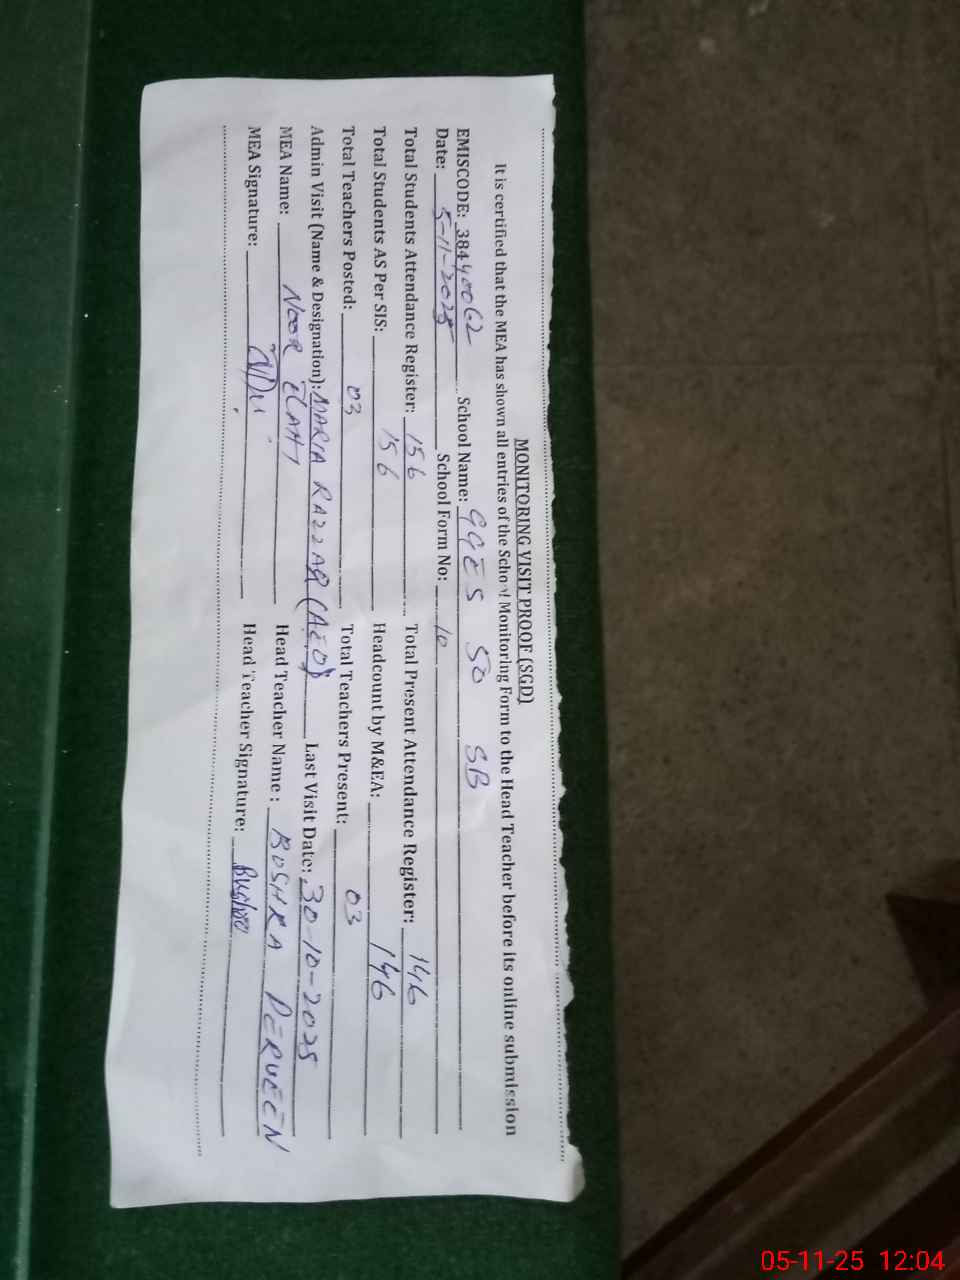 MONITORING VISIT PROOF (SGD)
It is certified that the MEA has shown all entries of the School Monitoring Form to the Head Teacher before its online submission
EMISCODE: 38440062 School Name: GGES 50 SB
Date: 5-11-2025 School Form No: 10
Total Students Attendance Register: 156 Total Present Attendance Register: 146
Total Students AS Per SIS: 156 Headcount by M&EA: 146
Total Teachers Posted: 03 Total Teachers Present: 03
Admin Visit (Name & Designation): MARIA RAZZAQ (AEO) Last Visit Date: 30-10-2025
MEA Name: NOOR ELAHI Head Teacher Name: BUSHRA PERVEEN
MEA Signature: Head Teacher Signature: Bushra
05-11-25 12:04